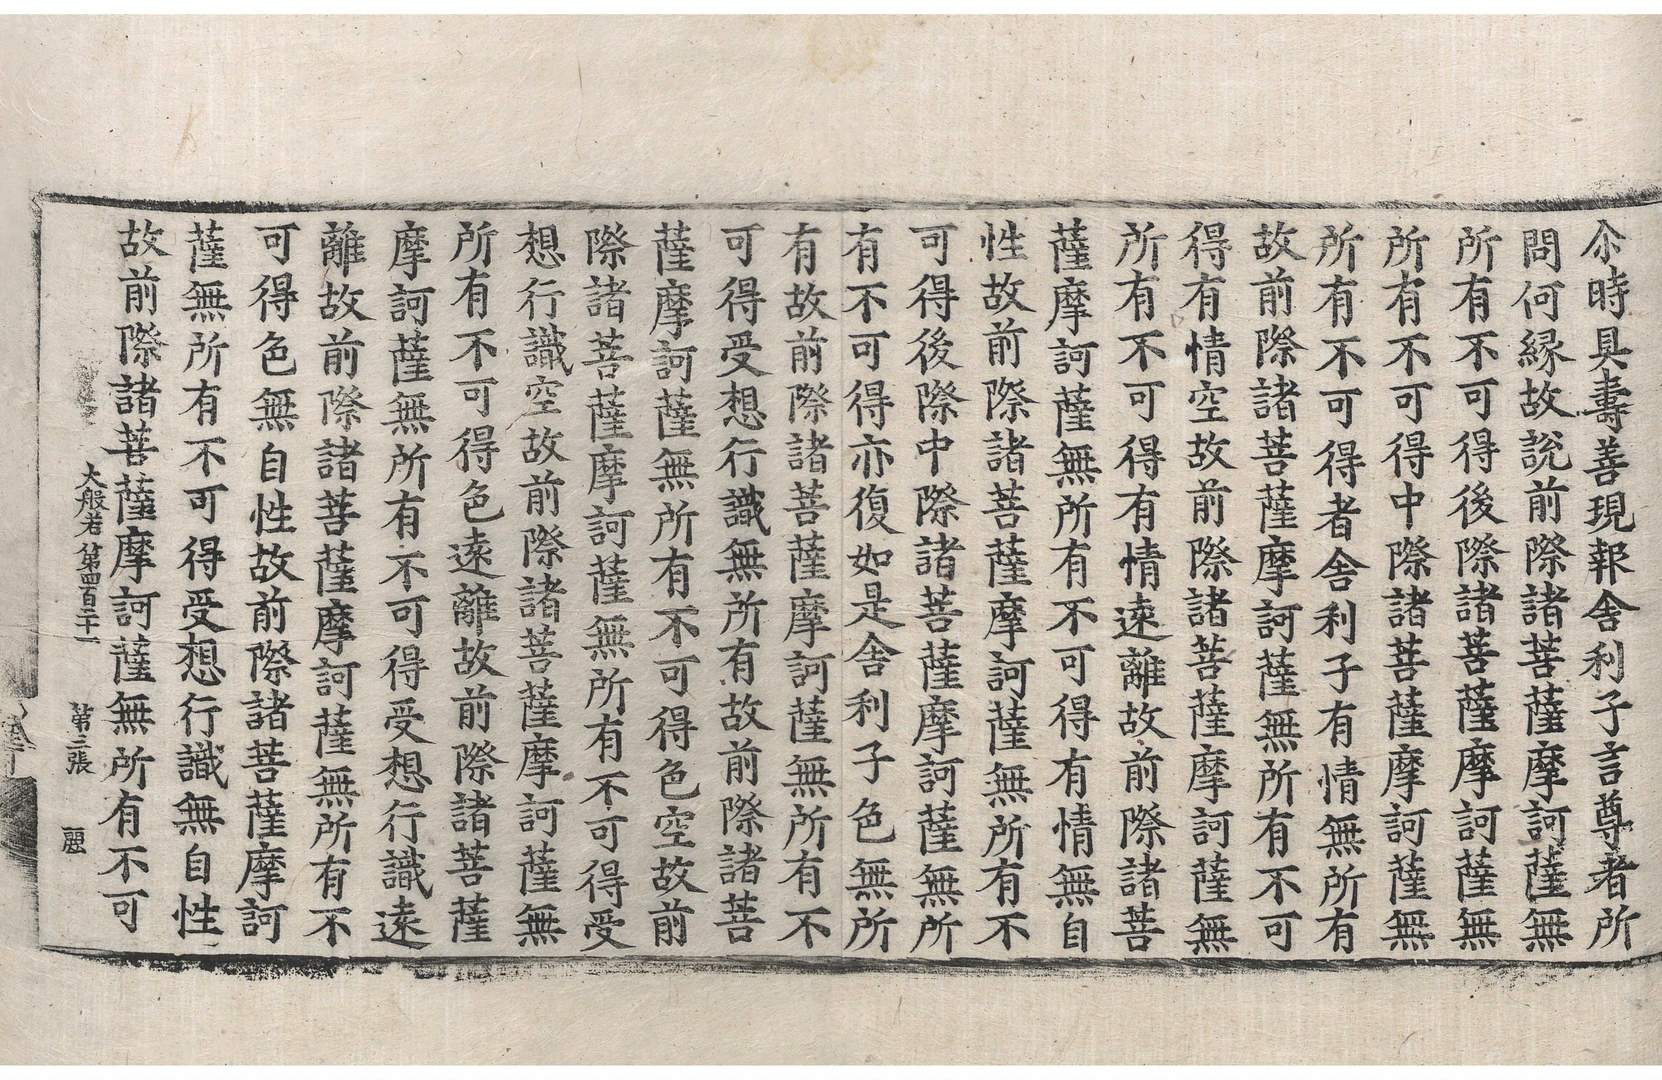 尒時具壽善現報舍利子言尊者所
問何緣故說前際諸菩薩摩訶薩無
所有不可得後際諸菩薩摩訶薩無
所有不可得中際諸菩薩摩訶薩無
所有不可得者舍利子有情無所有
故前際諸菩薩摩訶薩無所有不可
得有情空故前際諸菩薩摩訶薩無
所有不可得有情遠離故前際諸菩
薩摩訶薩無所有不可得有情無自
性故前際諸菩薩摩訶薩無所有不
可得後際中際諸菩薩摩訶薩無所
有不可得亦復如是舍利子色無所
有故前際諸菩薩摩訶薩無所有不
可得受想行識無所有故前際諸菩
薩摩訶薩無所有不可得色空故前
際諸菩薩摩訶薩無所有不可得受
想行識空故前際諸菩薩摩訶薩無
所有不可得色遠離故前際諸菩薩
摩訶薩無所有不可得受想行識遠
離故前際諸菩薩摩訶薩無所有不
可得色無自性故前際諸菩薩摩訶
薩無所有不可得受想行識無自性
故前際諸菩薩摩訶薩無所有不可
大般若第四百二十一 第二張 麗